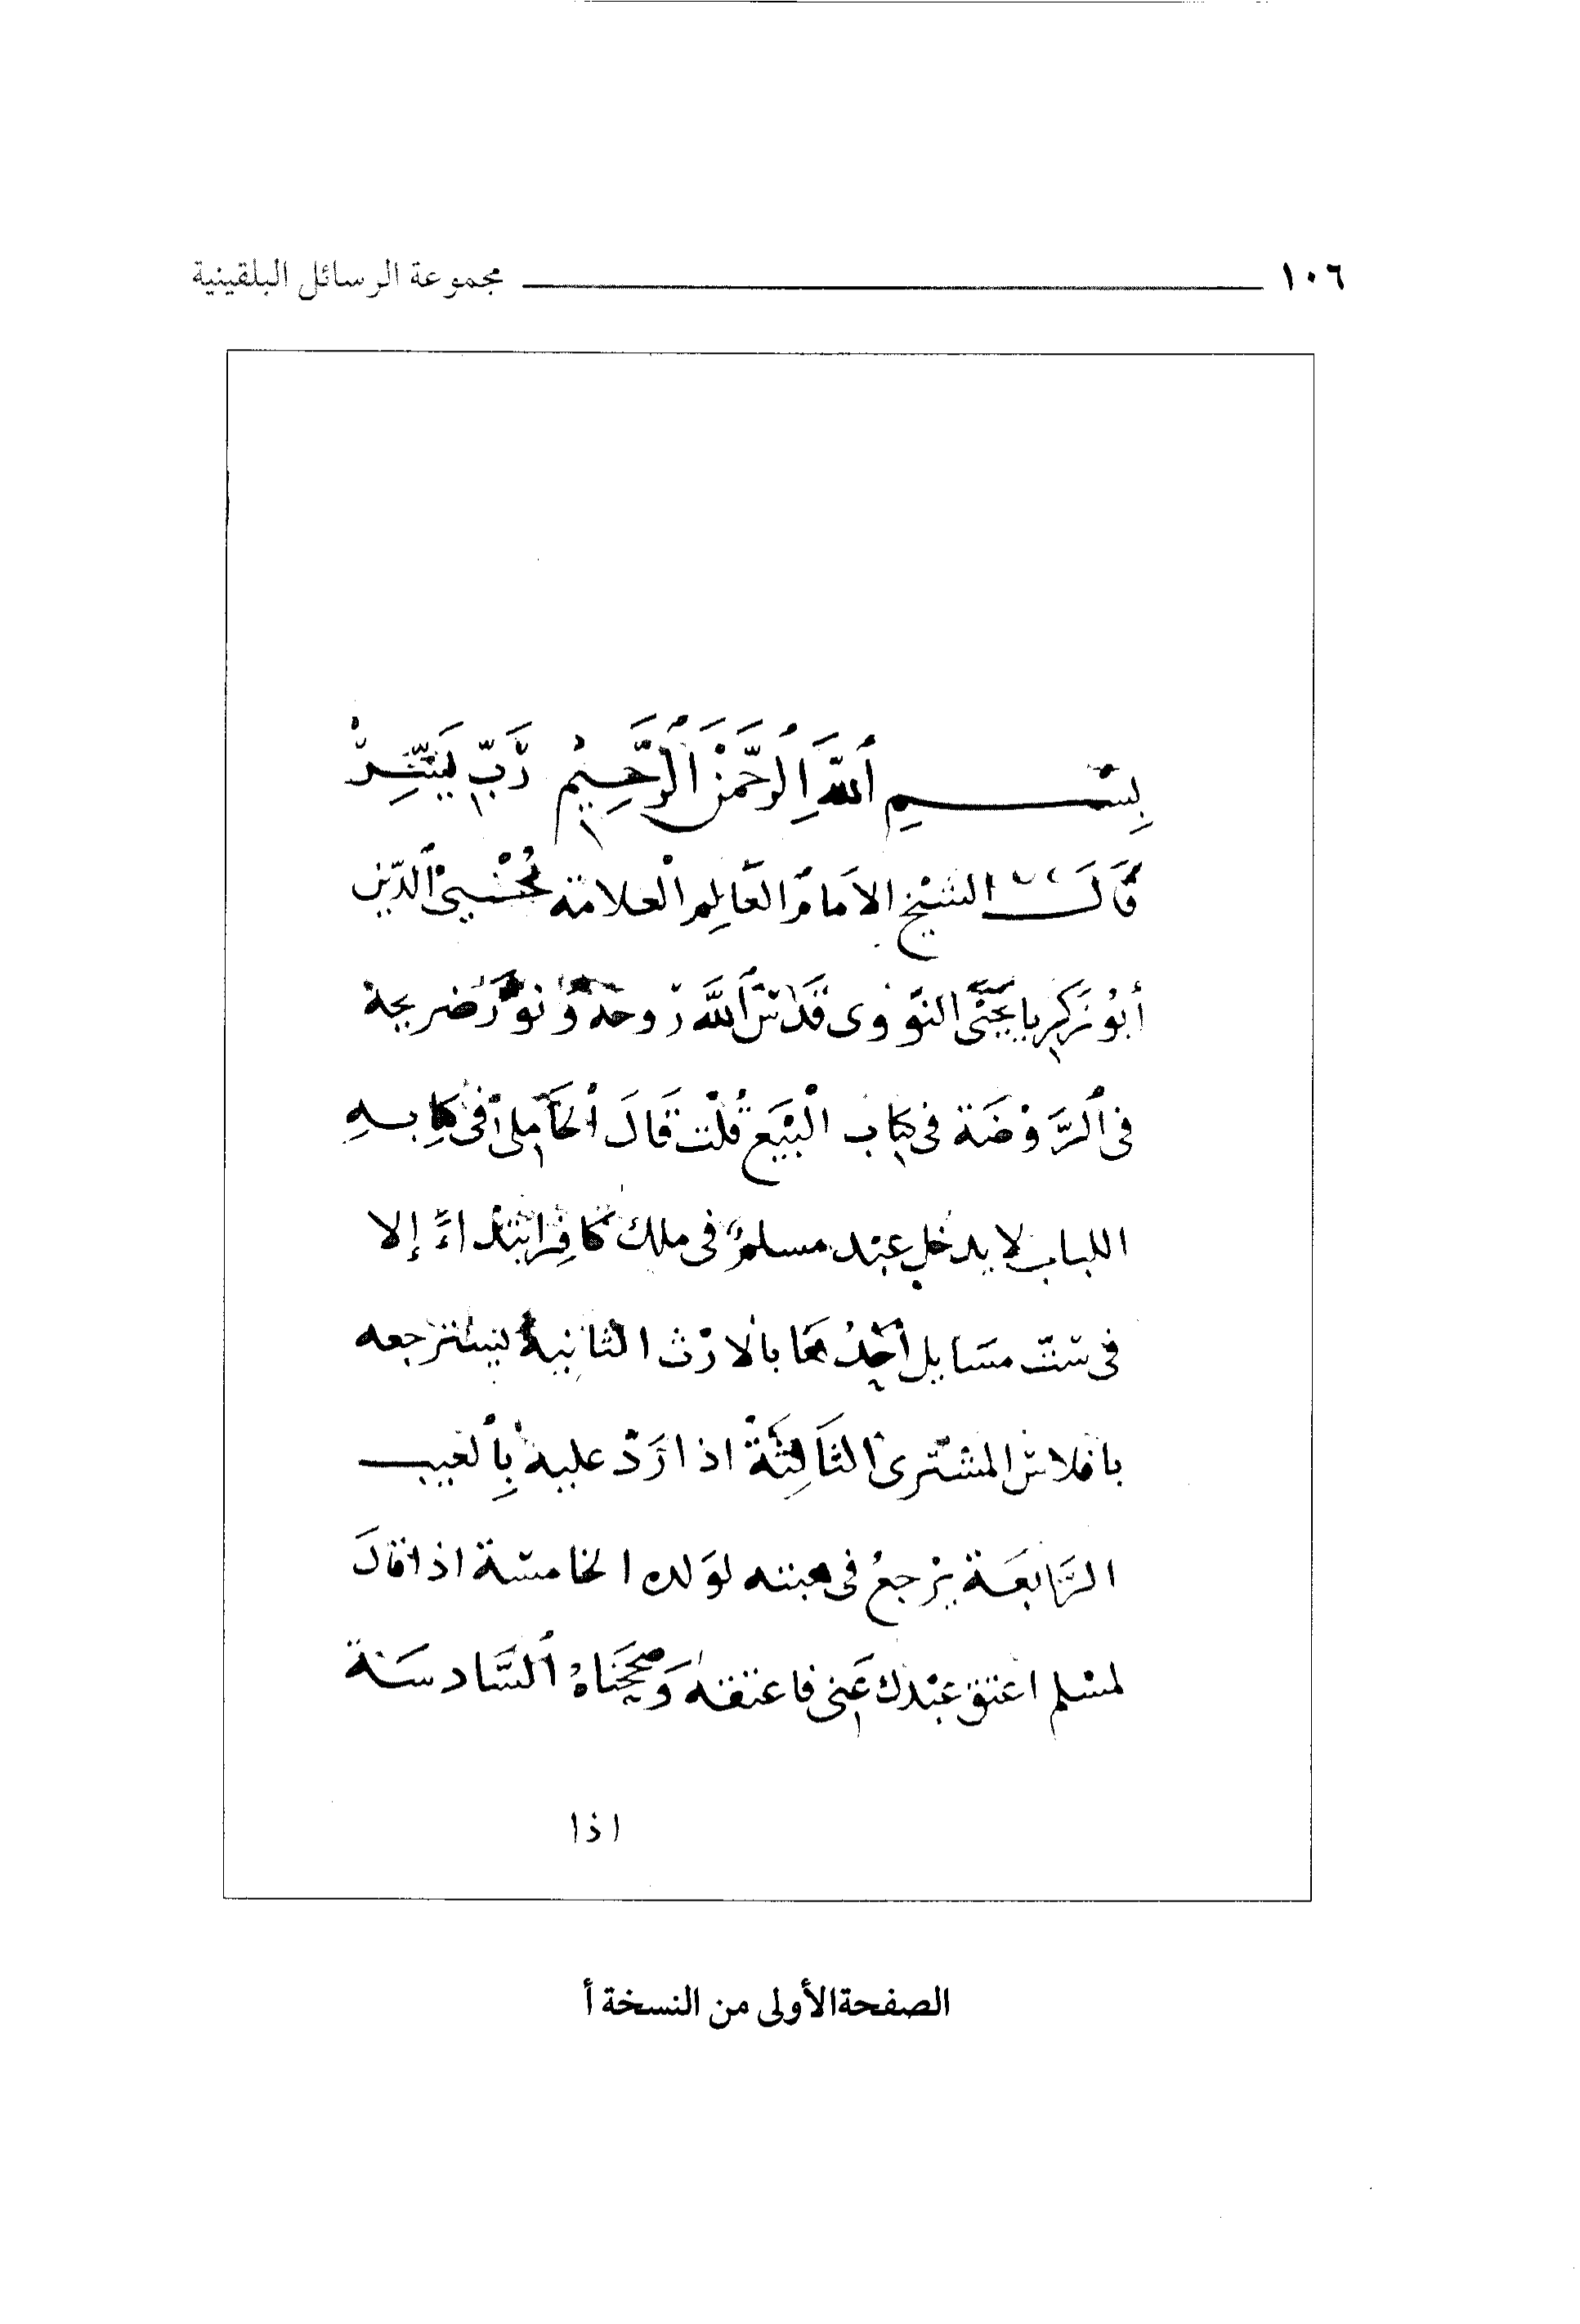 ١٠٦ مجموعة الرسائل البلقينية
بِسْمِ اللَّهِ الرَّحْمَنِ الرَّحِيمِ رَبِّ يَسِّرْ
قَالَ الشَّيْخ الامَام العَالِم الْعلامَة مُحْيِي الدِّين
أبُو زَكَرِيا يَحْيَى النَّوَوى قَدَّسَ اللَّه رُوحَهُ وَنوَّرَ ضريحهُ
فى الرَّوْضَة فى كِتَاب الْبَيْع قُلْت قَالَ المحَامِلى فى كِتَابهِ
اللباب لا يدخل عبْد مسلم فى ملك كافِر ابْتدَاءً إلا
فى ستّ مسَايل أحَدُهَا بالارْث الثانِيةُ يسترجعه
بافلاس المشْتَرى الثَّالِثَةُ اذا رَدّ عليهِ بِالعيب
الرَّابعَة يرْجعُ فى هبته لوَلده الخامسَة اذا قالَ
لمسْلم اعتق عبْدك عَنى فاعتقهُ وَصحَّحْنَاهُ السَّادسَة
اذا
الصفحة الأولى من النسخة أ